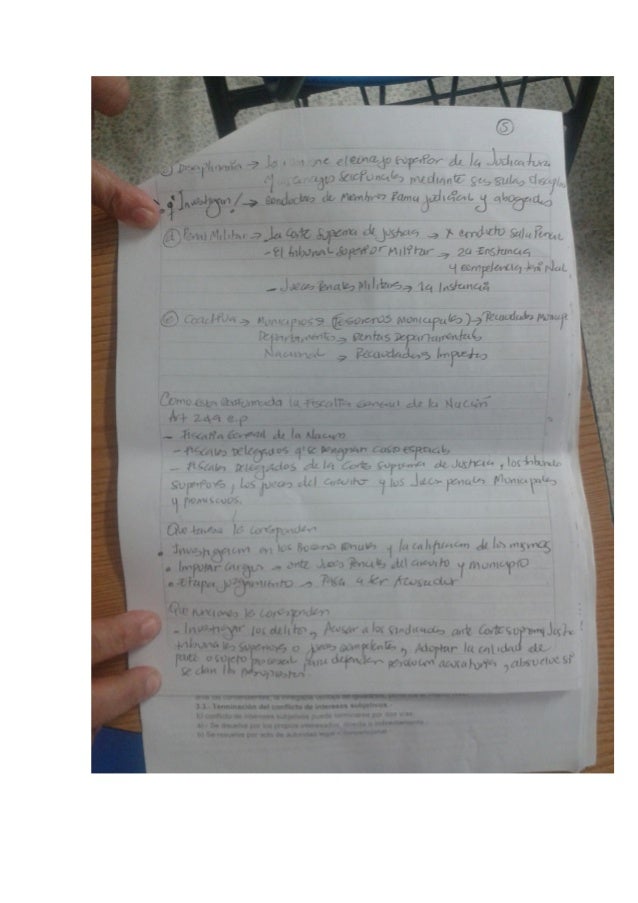 5
c) Disciplinaria → lo ejsuperior de la Judicatura
y Seccionales mediante sus salas discipl
Investigan! → conductas de miembros Rama judicial y abogados
d) Penal Militar → La Corte Suprema de Justicia → x conducto sala Penal
- El tribunal Superior Militar → 2a Instancia
y competencia
- Jueces Penales Militares → 1a Instancia
e) Coactiva → Municipios → (Tesoreros Municipales) → Recaudados Municipa
Departamento → Rentas Departamentales
Nacional → Recaudadores Impuestos
Como esta conformada la Fiscalia General de la Nación
Art 249 c.p
- Fiscalia General de la Nacion
- Fiscales Delegados q' se designan casos Especiales
- Fiscales Delegados de la Corte Suprema de Justicia, los tribunales
Superiores, los jueces del Circuito y los Jueces penales Municipales
y promiscuos.
Que tareas le corresponden
• Investigacion en los Penales y la calificacion de los mismos
• Imputar cargos → ante Jueces Penales del circuito y municipio
• Etapa juzgamiento → Pasa a ser Acusador
Que funciones le corresponden
- Investigar los delitos, Acusar a los sindicados ante Corte suprema Justic
tribunales superiores o jueces competentes, Adoptar la calidad de
parte o sujeto procesal para defender acusatorias, absuelve si
se dan los presupuestos.
3.1. Terminación del conflicto de intereses subjetivos.-
El conflicto de intereses subjetivos puede terminarse por dos vías:
a) - Se disuelve por los propios interesados, directa o indirectamente.-
b) Se resuelve por acto de autoridad legal o convencional